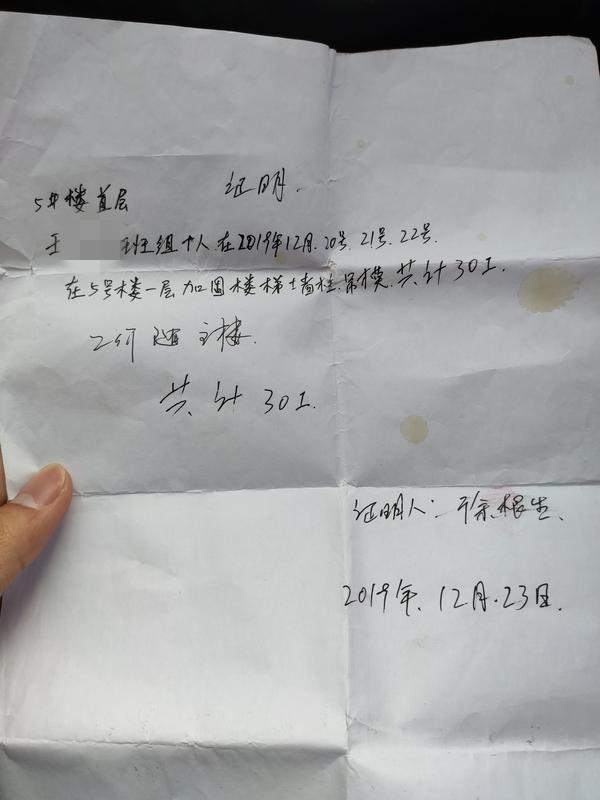 证明.
5#楼首层
王 班组 个人在2019年12月.20号.21号.22号.
在5号楼一层加固楼梯墙柱.吊模.共计30工.
主楼.
共计30工.
证明人: 徐根生.
2019年.12月.23日.